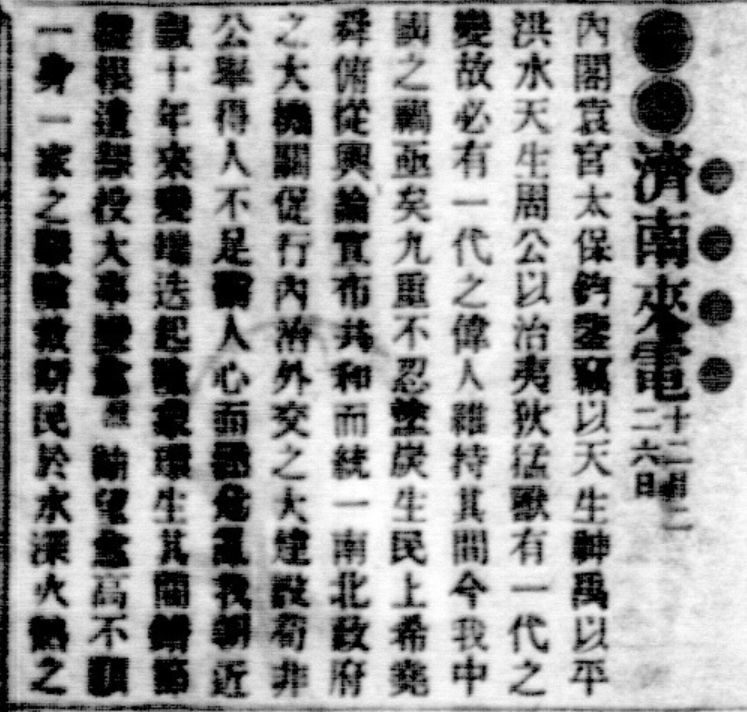 濟南來電 十二月二
二六日
內閣袁宮太保鈞鑒竊以天生神禹以平
洪水天生周公以治夷狄猛獸有一代之
變故必有一代之偉人維持其間今我中
國之禍亟矣九重不忍塗炭生民上希堯
舜俯從輿論宣布共和而統一南北政府
之大機關促行內治外交之大建設苟非
公舉得人不足饜人心而救危亂我朝近
數十年來變端迭起環生其間
授大事 望高不
一身一家之 救斯民於水深火熱之